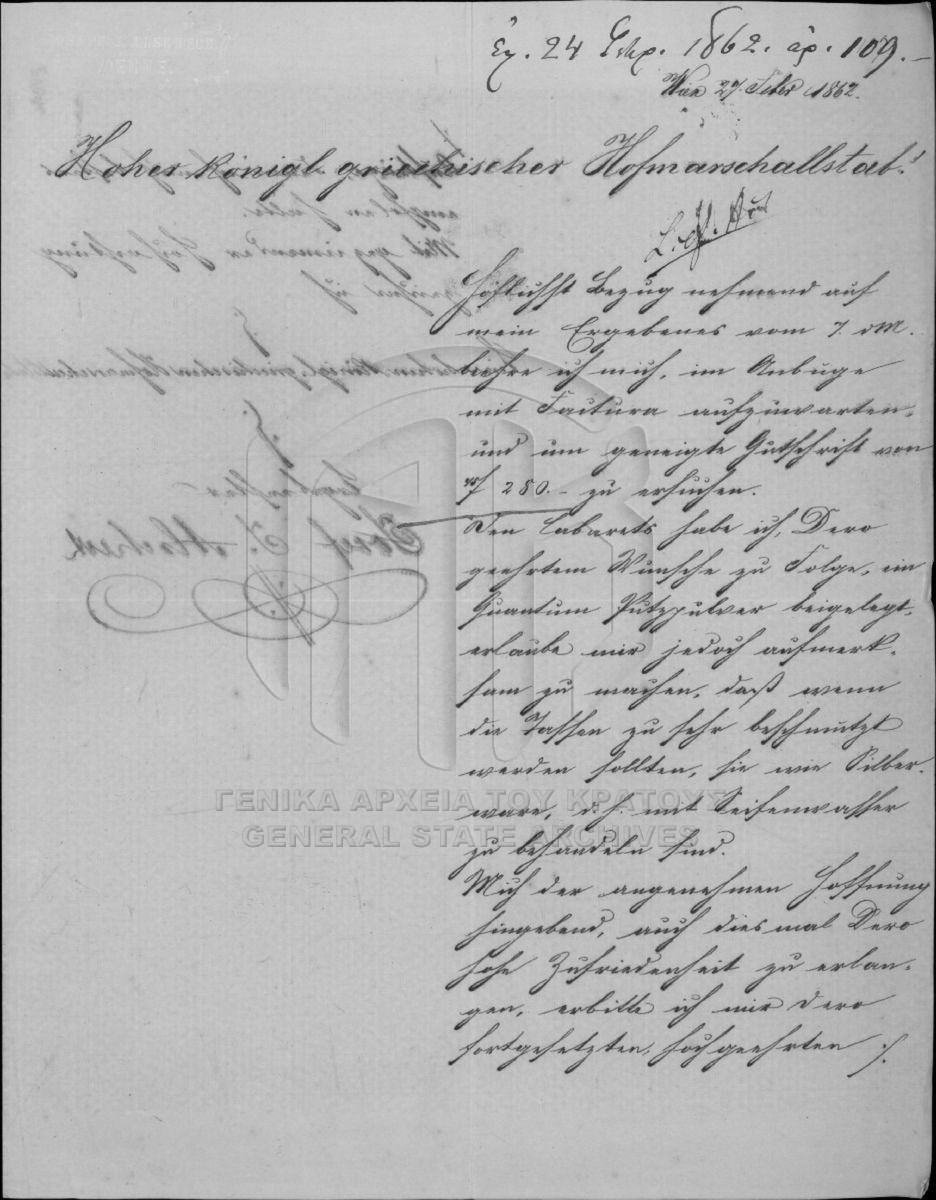 24 1862. ἀρ. 109.
Wien 27. Feber 1862.
Hoher königl. griechischer Hofmarschallstab!
Höflichst Bezug nehmend auf
mein Ergebenes vom 7. dM.
beehre ich mich, im Anbuge
mit Factura aufzuwarten,
und um geneigte Gutschrift von
f 280.– zu ersuchen.
Den Cabarets habe ich, Dero
geehrtem Wunsche zu Folge, ein
Quantum Putzpulver beigelegt,
erlaube mir jedoch aufmerk-
sam zu machen, daß wenn
die Tassen zu sehr beschmutzt
werden sollten, sie wie Silber-
ware, d. h. mit Seifenwasser
zu behandeln sind.
Mich der angenehmen Hoffnung
hingebend, auch dies mal Dero
hohe Zufriedenheit zu erlan-
gen, erbitte ich mir dero
fortgesetzten, hochgeehrten ./.
ΓΕΝΙΚΑ ΑΡΧΕΙΑ ΤΟΥ ΚΡΑΤΟΥΣ
GENERAL STATE ARCHIVES